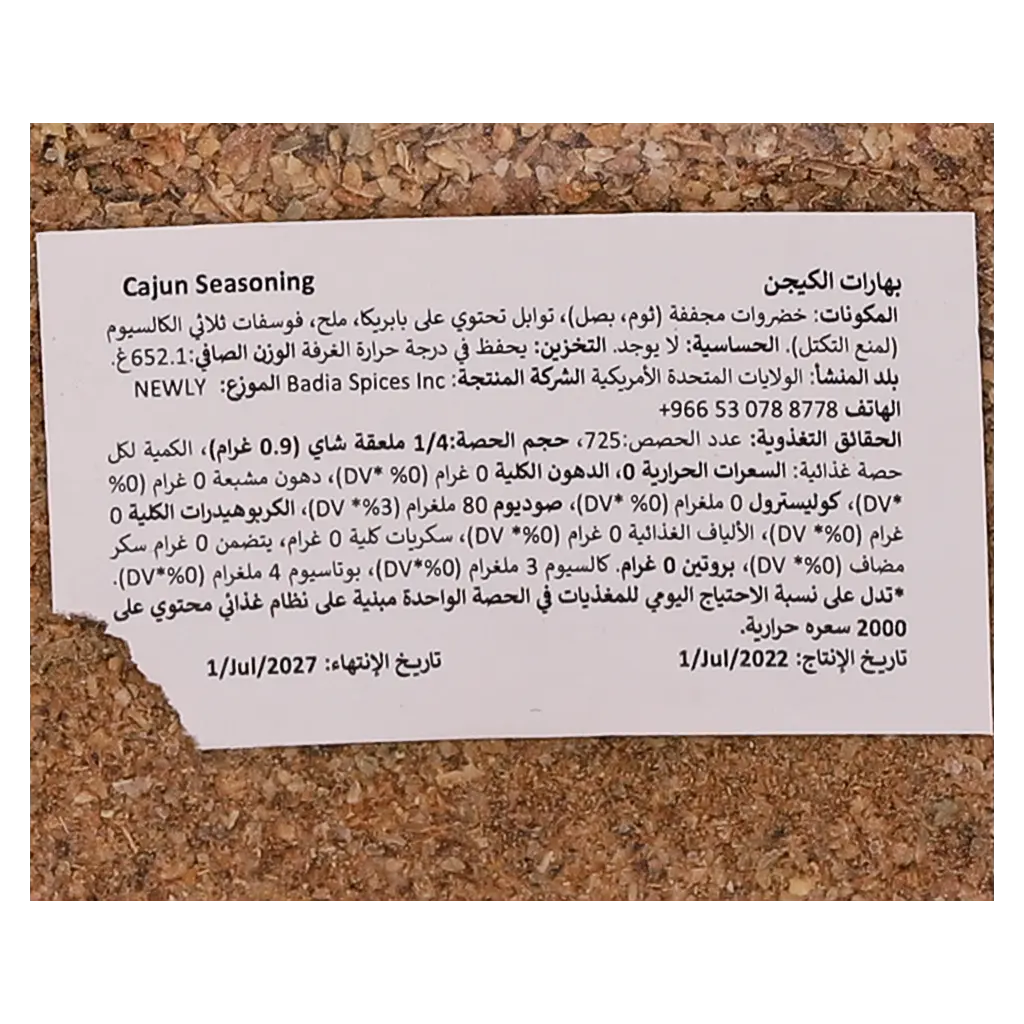 بهارات الكيجن Cajun Seasoning
المكونات: خضروات مجففة (ثوم، بصل)، توابل تحتوي على بابريكا، ملح، فوسفات ثلاثي الكالسيوم
(لمنع التكتل). الحساسية: لا يوجد. التخزين: يحفظ في درجة حرارة الغرفة الوزن الصافي:652.1غ.
بلد المنشأ: الولايات المتحدة الأمريكية الشركة المنتجة: Badia Spices Inc الموزع: NEWLY
الهاتف 8778 078 53 966+
الحقائق التغذوية: عدد الحصص:725، حجم الحصة:1/4 ملعقة شاي (0.9 غرام)، الكمية لكل
حصة غذائية: السعرات الحرارية 0، الدهون الكلية 0 غرام (0% *DV)، دهون مشبعة 0 غرام (0%
*DV)، كوليسترول 0 ملغرام (0% *DV)، صوديوم 80 ملغرام (3%* DV)، الكربوهيدرات الكلية 0
غرام (0%* DV)، الألياف الغذائية 0 غرام (0%* DV)، سكريات كلية 0 غرام، يتضمن 0 غرام سكر
مضاف (0%* DV)، بروتين 0 غرام. كالسيوم 3 ملغرام (0%*DV)، بوتاسيوم 4 ملغرام (0%*DV).
*تدل على نسبة الاحتياج اليومي للمغذيات في الحصة الواحدة مبنية على نظام غذائي محتوي على
2000 سعره حرارية.
تاريخ الإنتاج: 1/Jul/2022 تاريخ الإنتهاء: 1/Jul/2027